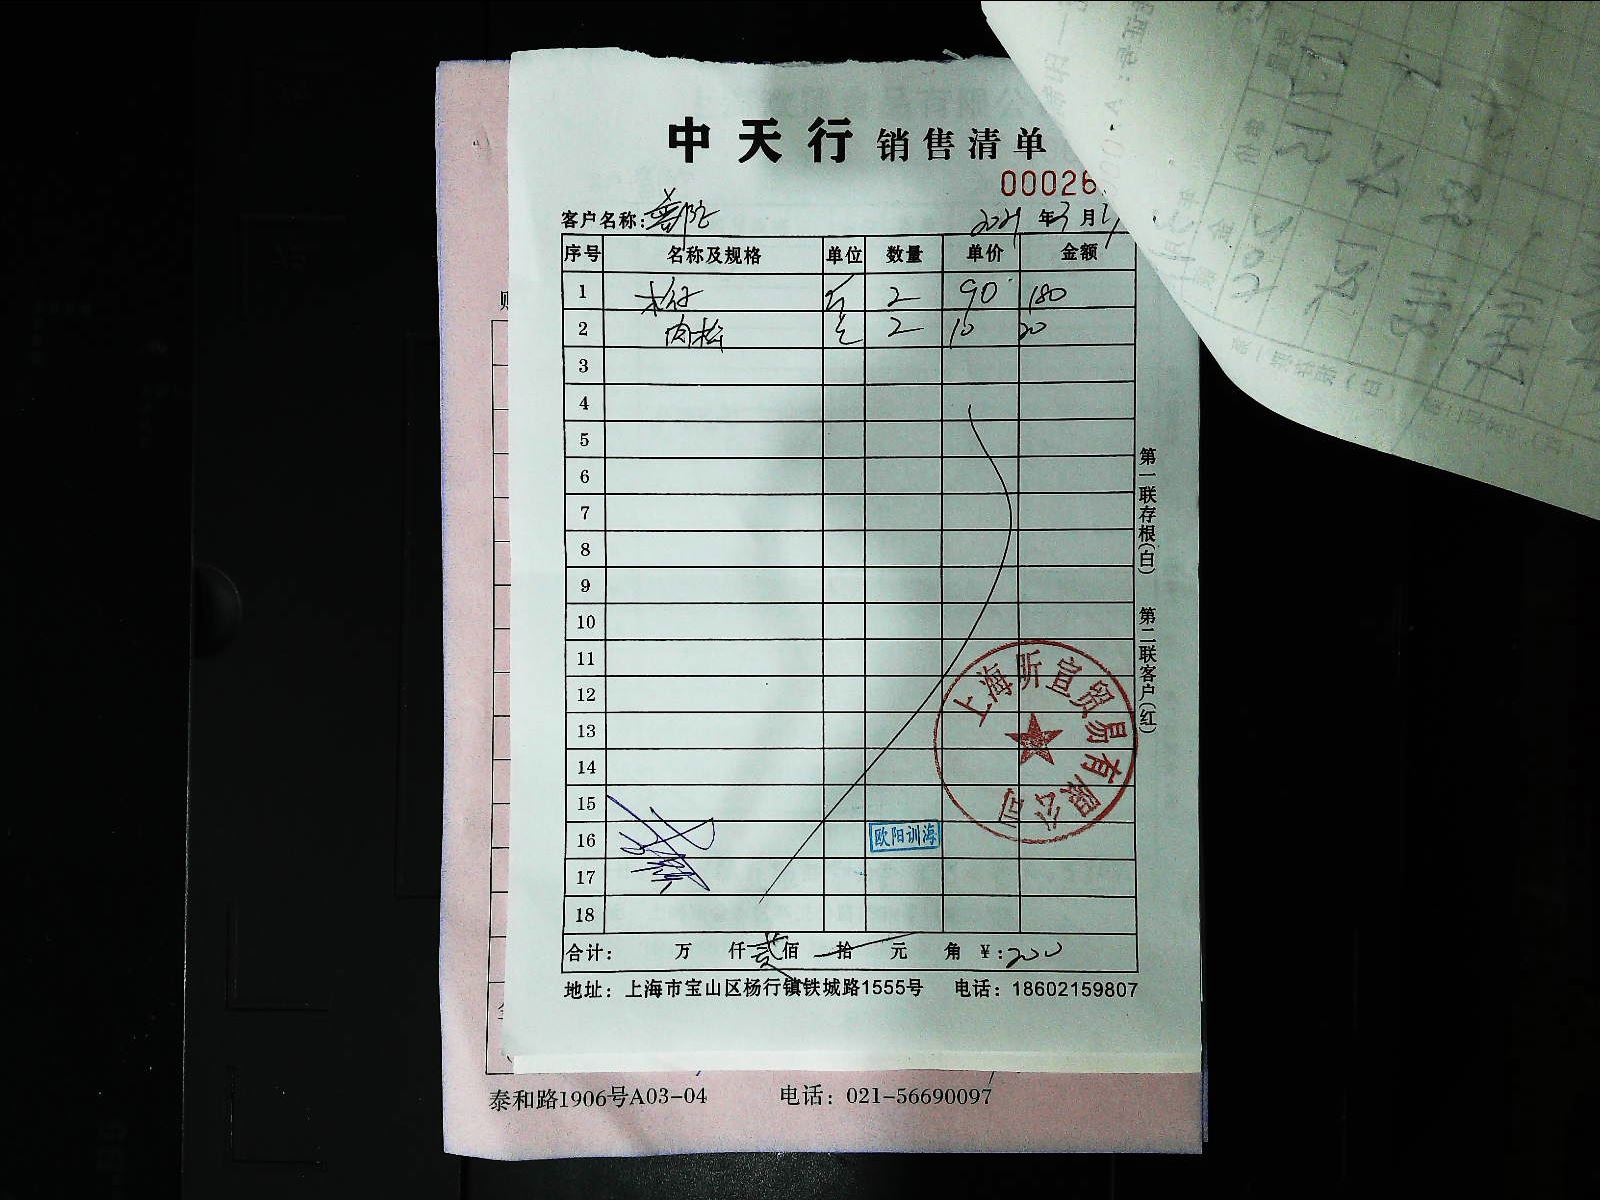 中天行 销售清单
00026
客户名称:普陀 2021 年3月
序号 名称及规格 单位 数量 单价 金额
1 木仔 2 90 180
2 肉松 2 10 20
3
4
5
6
7
8
9
10
11
12
13
14
15
16
17
18
上海昕宣贸易有限公司
欧阳训海
合计: 万 仟贰佰 拾 元 角 ¥:200
地址:上海市宝山区杨行镇铁城路1555号 电话:18602159807
第一联存根(白) 第二联客户(红)
泰和路1906号A03-04 电话:021-56690097